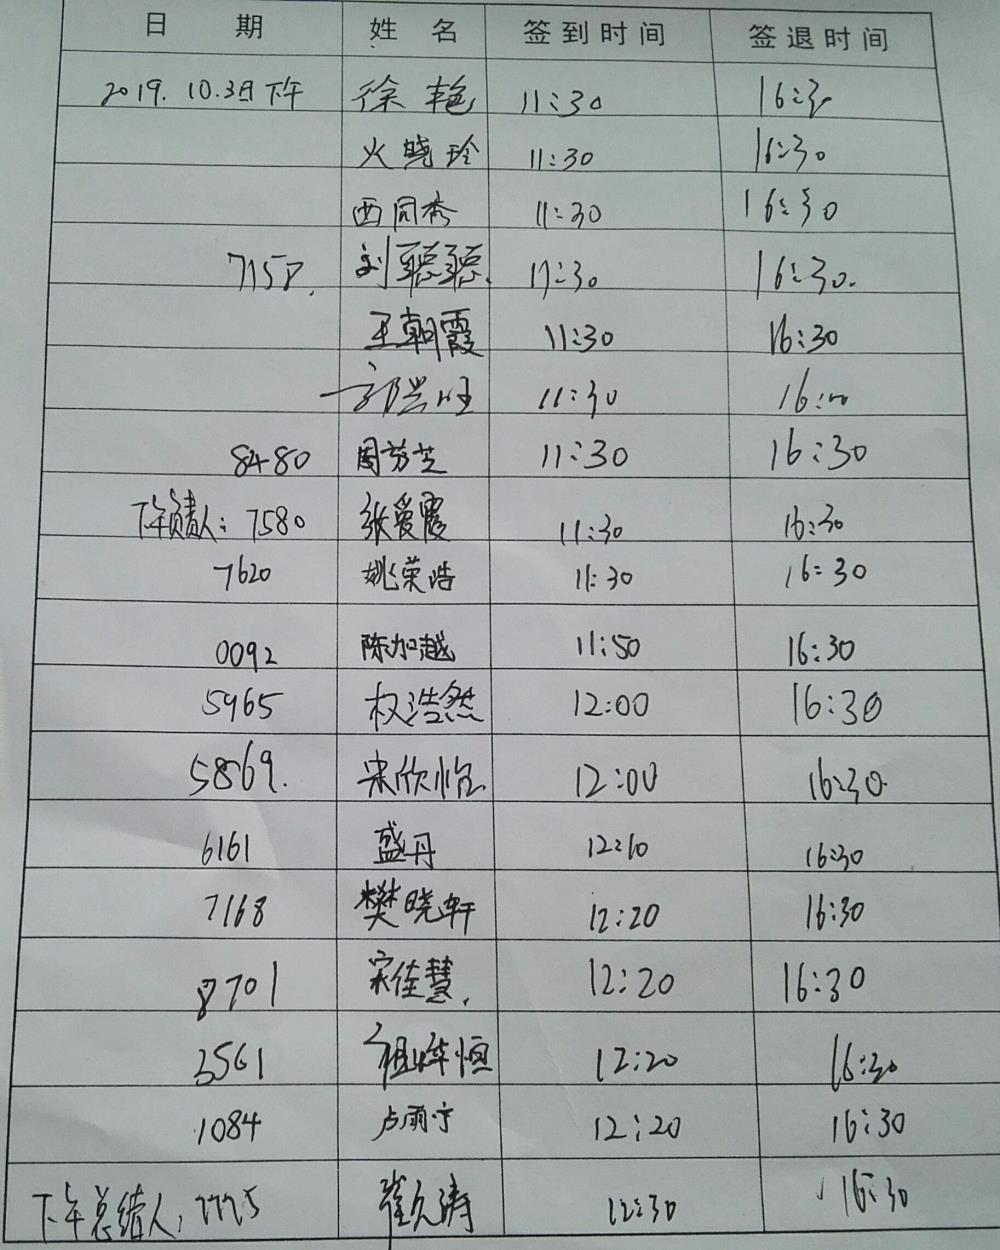 日 期 姓 名 签到时间 签退时间
2019. 10.3日下午 徐艳 11:30 16:30
火晓玲 11:30 16:30
西同秀 11:30 16:30
7158. 刘聪聪. 11:30 16:30.
王朝霞 11:30 16:30
11:30 16:00
8480 周芬芝 11:30 16:30
下午负责人: 7580 张爱霞 11:30 16:30
7620 姚荣浩 11:30 16:30
0092 陈加越 11:50 16:30
5965 权浩然 12:00 16:30
5869. 宋欣怡 12:00 16:30.
6161 盛丹 12:10 16:30
7168 樊晓轩 12:20 16:30
8701 宋佳慧. 12:20 16:30
3561 12:20 16:30
1084 卢雨宁 12:20 16:30
下午总结人: 7725 崔久涛 12:30 16:30